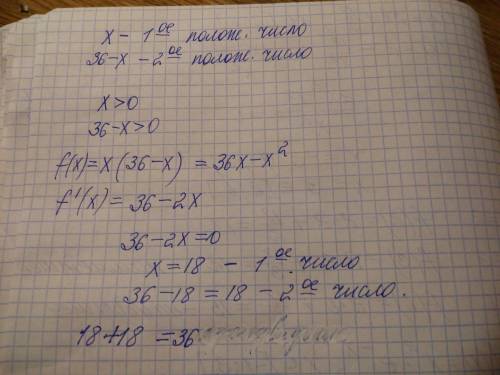 x – 1ое полож. число
36-x – 2ое полож. число
x>0
36-x>0
f(x)=x(36-x) = 36x-x²
f'(x)= 36-2x
36-2x=0
x=18 – 1ое число
36-18=18 – 2ое число.
18+18 =36